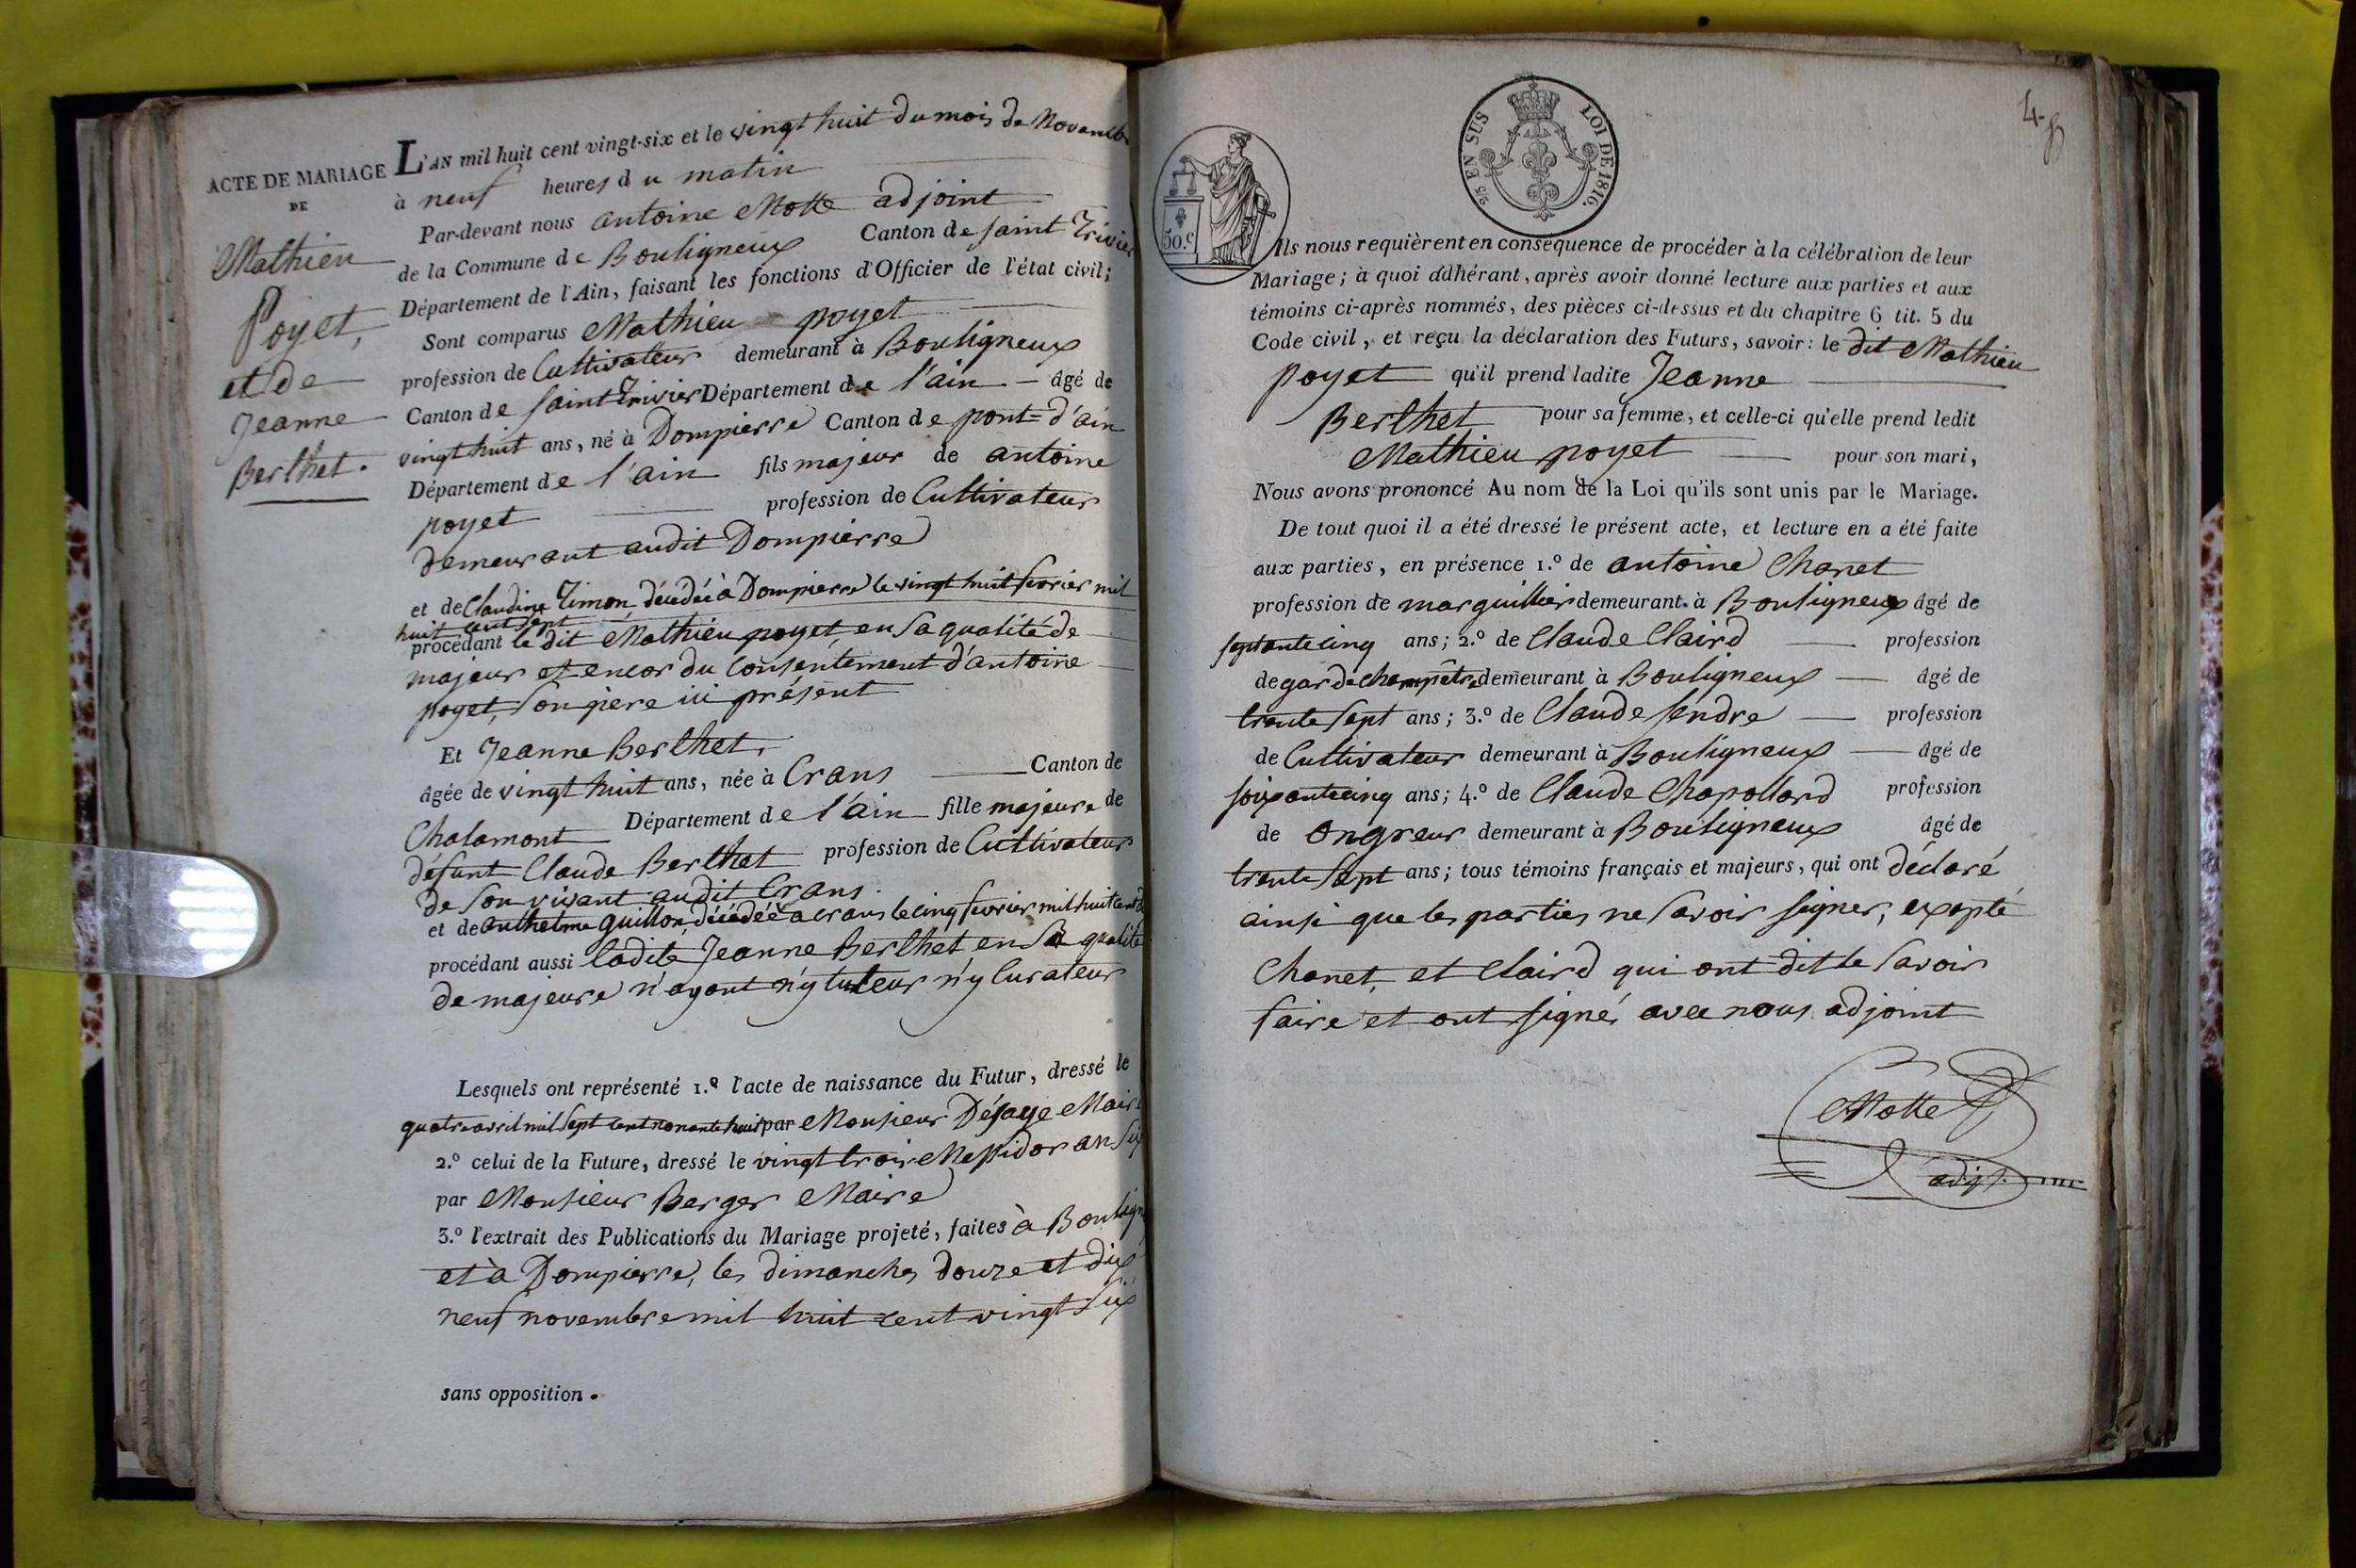 ACTE DE MARIAGE
DE
Mathieu
Poyet,
et de
Jeanne
Berthet.
L'AN mil huit cent vingt-six et le vingt huit du mois de Novembre
à neuf heures du matin
Par-devant nous antoine Motte adjoint
de la Commune de Bouligneux Canton de saint Trivier
Département de l'Ain, faisant les fonctions d'Officier de l'état civil;
Sont comparus Mathieu poyet
profession de Cultivateur demeurant à Bouligneux
Canton de saint Trivier Département de l'ain âgé de
vingt huit ans, né à Dompierre Canton de pont-d'ain
Département de l'ain fils majeur de antoine
poyet profession de Cultivateur
demeurant audit Dompierre
et de Claudine Timon décédée à Dompierre le vingt huit fevrier mil
huit cent sept
procédant le dit Mathieu poyet en sa qualité de
majeur et encor du Consentement d'antoine
poyet, son père ici présent
Et Jeanne Berthet,
âgée de vingt huit ans, née à Crans Canton de
Chalamont Département de l'ain fille majeure de
défunt Claude Berthet profession de Cultivateur
de son vivant audit Crans.
et de anthelme Guillon, décédéé a crans le cinq fevrier mil huit cent
procédant aussi ladite Jeanne Berthet en sa qualité
de majeure n'ayant n'y tuteur n'y Curateur
Lesquels ont représenté 1.º l'acte de naissance du Futur, dressé le
quatre avril mil sept cent nonante huit par Monsieur Désaye Maire
2.º celui de la Future, dressé le vingt trois Messidor an Six
par Monsieur Berger Maire
3.º l'extrait des Publications du Mariage projeté, faites à Bouligneux
et à Dompierre, les dimanches douze et dix
neuf novembre mil huit cent vingt Six
sans opposition.
25 EN SUS
LOI DE 1816.
50.c
Ils nous requièrent en conséquence de procéder à la célébration de leur
Mariage; à quoi adhérant, après avoir donné lecture aux parties et aux
témoins ci-après nommés, des pièces ci-dessus et du chapitre 6 tit. 5 du
Code civil, et reçu la déclaration des Futurs, savoir: le dit Mathieu
poyet qu'il prend ladite Jeanne
Berthet pour sa femme, et celle-ci qu'elle prend ledit
Mathieu poyet pour son mari,
Nous avons prononcé Au nom de la Loi qu'ils sont unis par le Mariage.
De tout quoi il a été dressé le présent acte, et lecture en a été faite
aux parties, en présence 1.º de antoine Chanet
profession de marguillier demeurant à Bouligneux âgé de
septante cinq ans; 2.º de Claude Claird profession
de garde champêtre demeurant à Bouligneux âgé de
trente sept ans; 3.º de Claude fendre profession
de Cultivateur demeurant à Bouligneux âgé de
soixante cinq ans; 4.º de Claude Chapolard profession
de ongreur demeurant à Bouligneux âgé de
trente sept ans; tous témoins français et majeurs, qui ont déclaré
ainsi que les parties ne savoir signer, excepté
Chanet, et Claird qui ont dit le savoir
faire et ont signé avec nous adjoint
Motte
adjt.